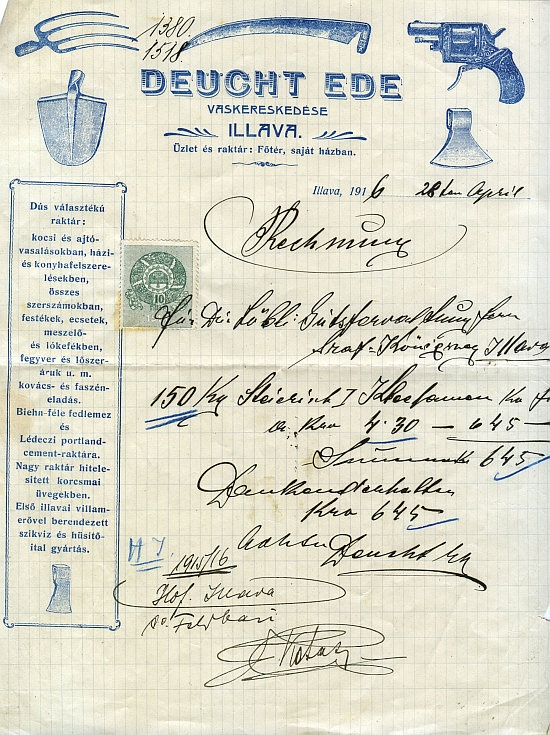 1380.
1518.
DEUCHT EDE
VASKERESKEDÉSE
ILLAVA.
Üzlet és raktár: Főtér, saját házban.
Illava, 1916 28ten April
Rechnung
Dús választékú
raktár:
kocsi és ajtó-
vasalásokban, házi-
és konyhafelszere-
lésekben,
összes
szerszámokban,
festékek, ecsetek,
meszelő-
és lókefékben,
fegyver és lőszer-
áruk u. m.
kovács- és faszén-
eladás.
Biehn-féle fedlemez
és
Lédeczi portland-
cement-raktára.
Nagy raktár hitele-
sitett korcsmai
üvegekben.
Első illavai villam-
erővel berendezett
szikviz és hüsitő-
ital gyártás.
10
Für Die Löbl: Gutsverwaltung
Graf Königsegg Illava
150 Kg Steirisch I Kleesamen
a Kro 4.30 — 645 —
Summa 645
Dankend erhalten
Kro 645
Deucht Ede
1915/16
Hof Illava